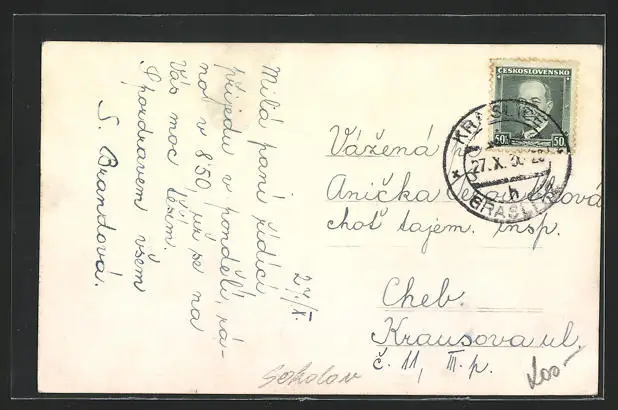 27/X.
Milá paní řídící
přijedu v pondělí, rá-
no v 8'50, už se na
Vás moc těším.
S pozdravem všem
S. Brandová.
ČESKOSLOVENSKO
50 50
KRASLICE
27.X.
h
GRASLITZ
Vážená
Anička
choť tajem. insp.
Cheb.
Krausova ul.
č. 11, III. p.
Sokolov